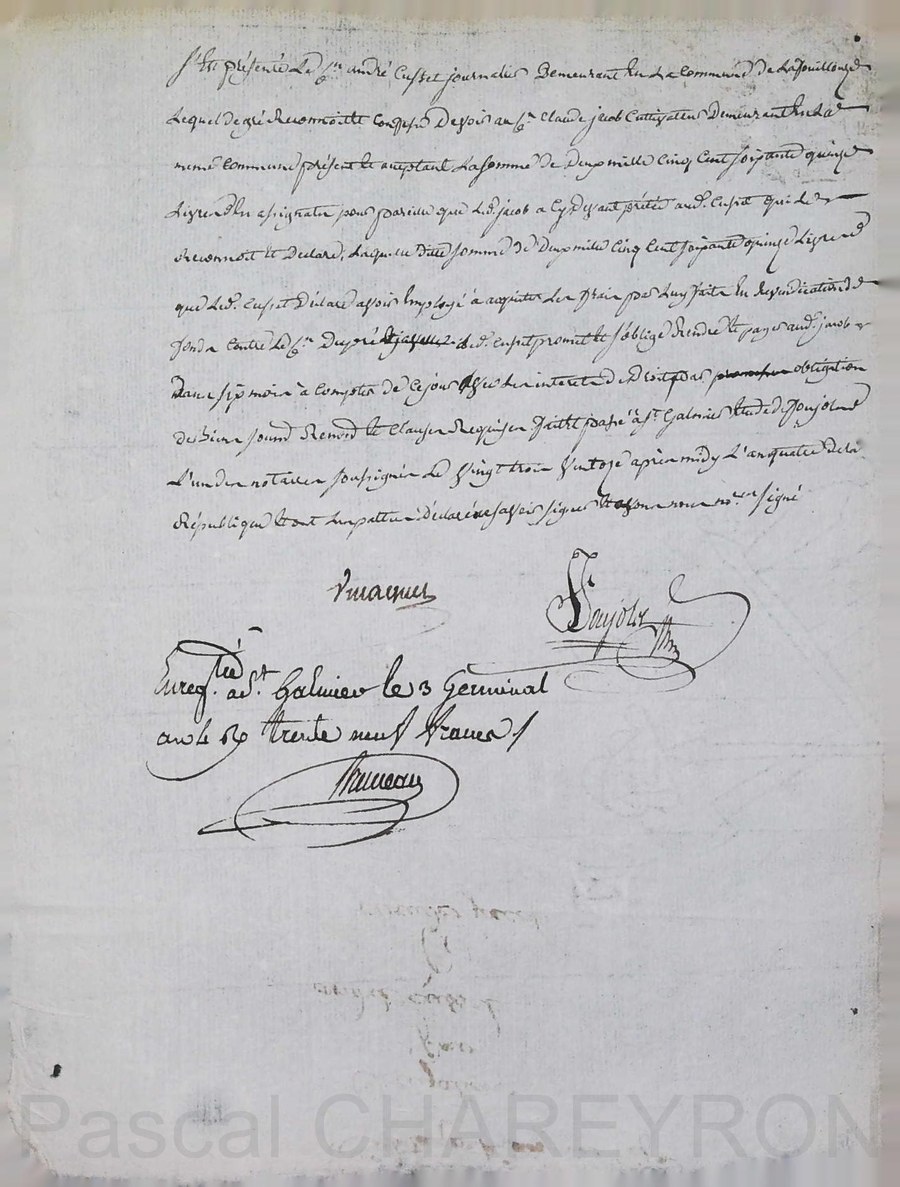 S'est présenté Le Cen andré Cusset journalier Demeurant En La Commune de Lafouillouze
Lequel de gré Reconnoit et Confesse Devoir au Cen Claude jacob Cultivateur Demeurant En La
meme Commune présent et acceptant La somme de Deux mille Cinq Cent soixante quinze
Livres En assignats pour pareille que Led. jacob a Cy devant prêtée aud. Cusset qui Le
Reconnoit et Declare, Laquelle ditte somme de Deux mille Cinq Cent soixante quinze Livres
que Led. Cusset Déclare avoir Employé à acquitter Les frais par Luy faits En Revindication de
fonds Contre Le Cen Dupré Led. Cusset promet et s'oblige Rendre et payer aud. jacob
Dans six mois à Compter de Ce jour avec Les interets de Droit par obligation
de Biens soumis Renons et Clauses Requises fait et passé à St. Galmier Etude de Poujolas
L'un des notaires soussignés Le Vingt trois Ventose après midy L'an quatre de La
République Et ont Les parties Déclaré ne savoir signer Et avons nous nores signé
Poujolas
Enregtré. a St. Galmier le 3 Germinal
an 4 R trente neuf francs /
Bruneau
Pascal CHAREYRON